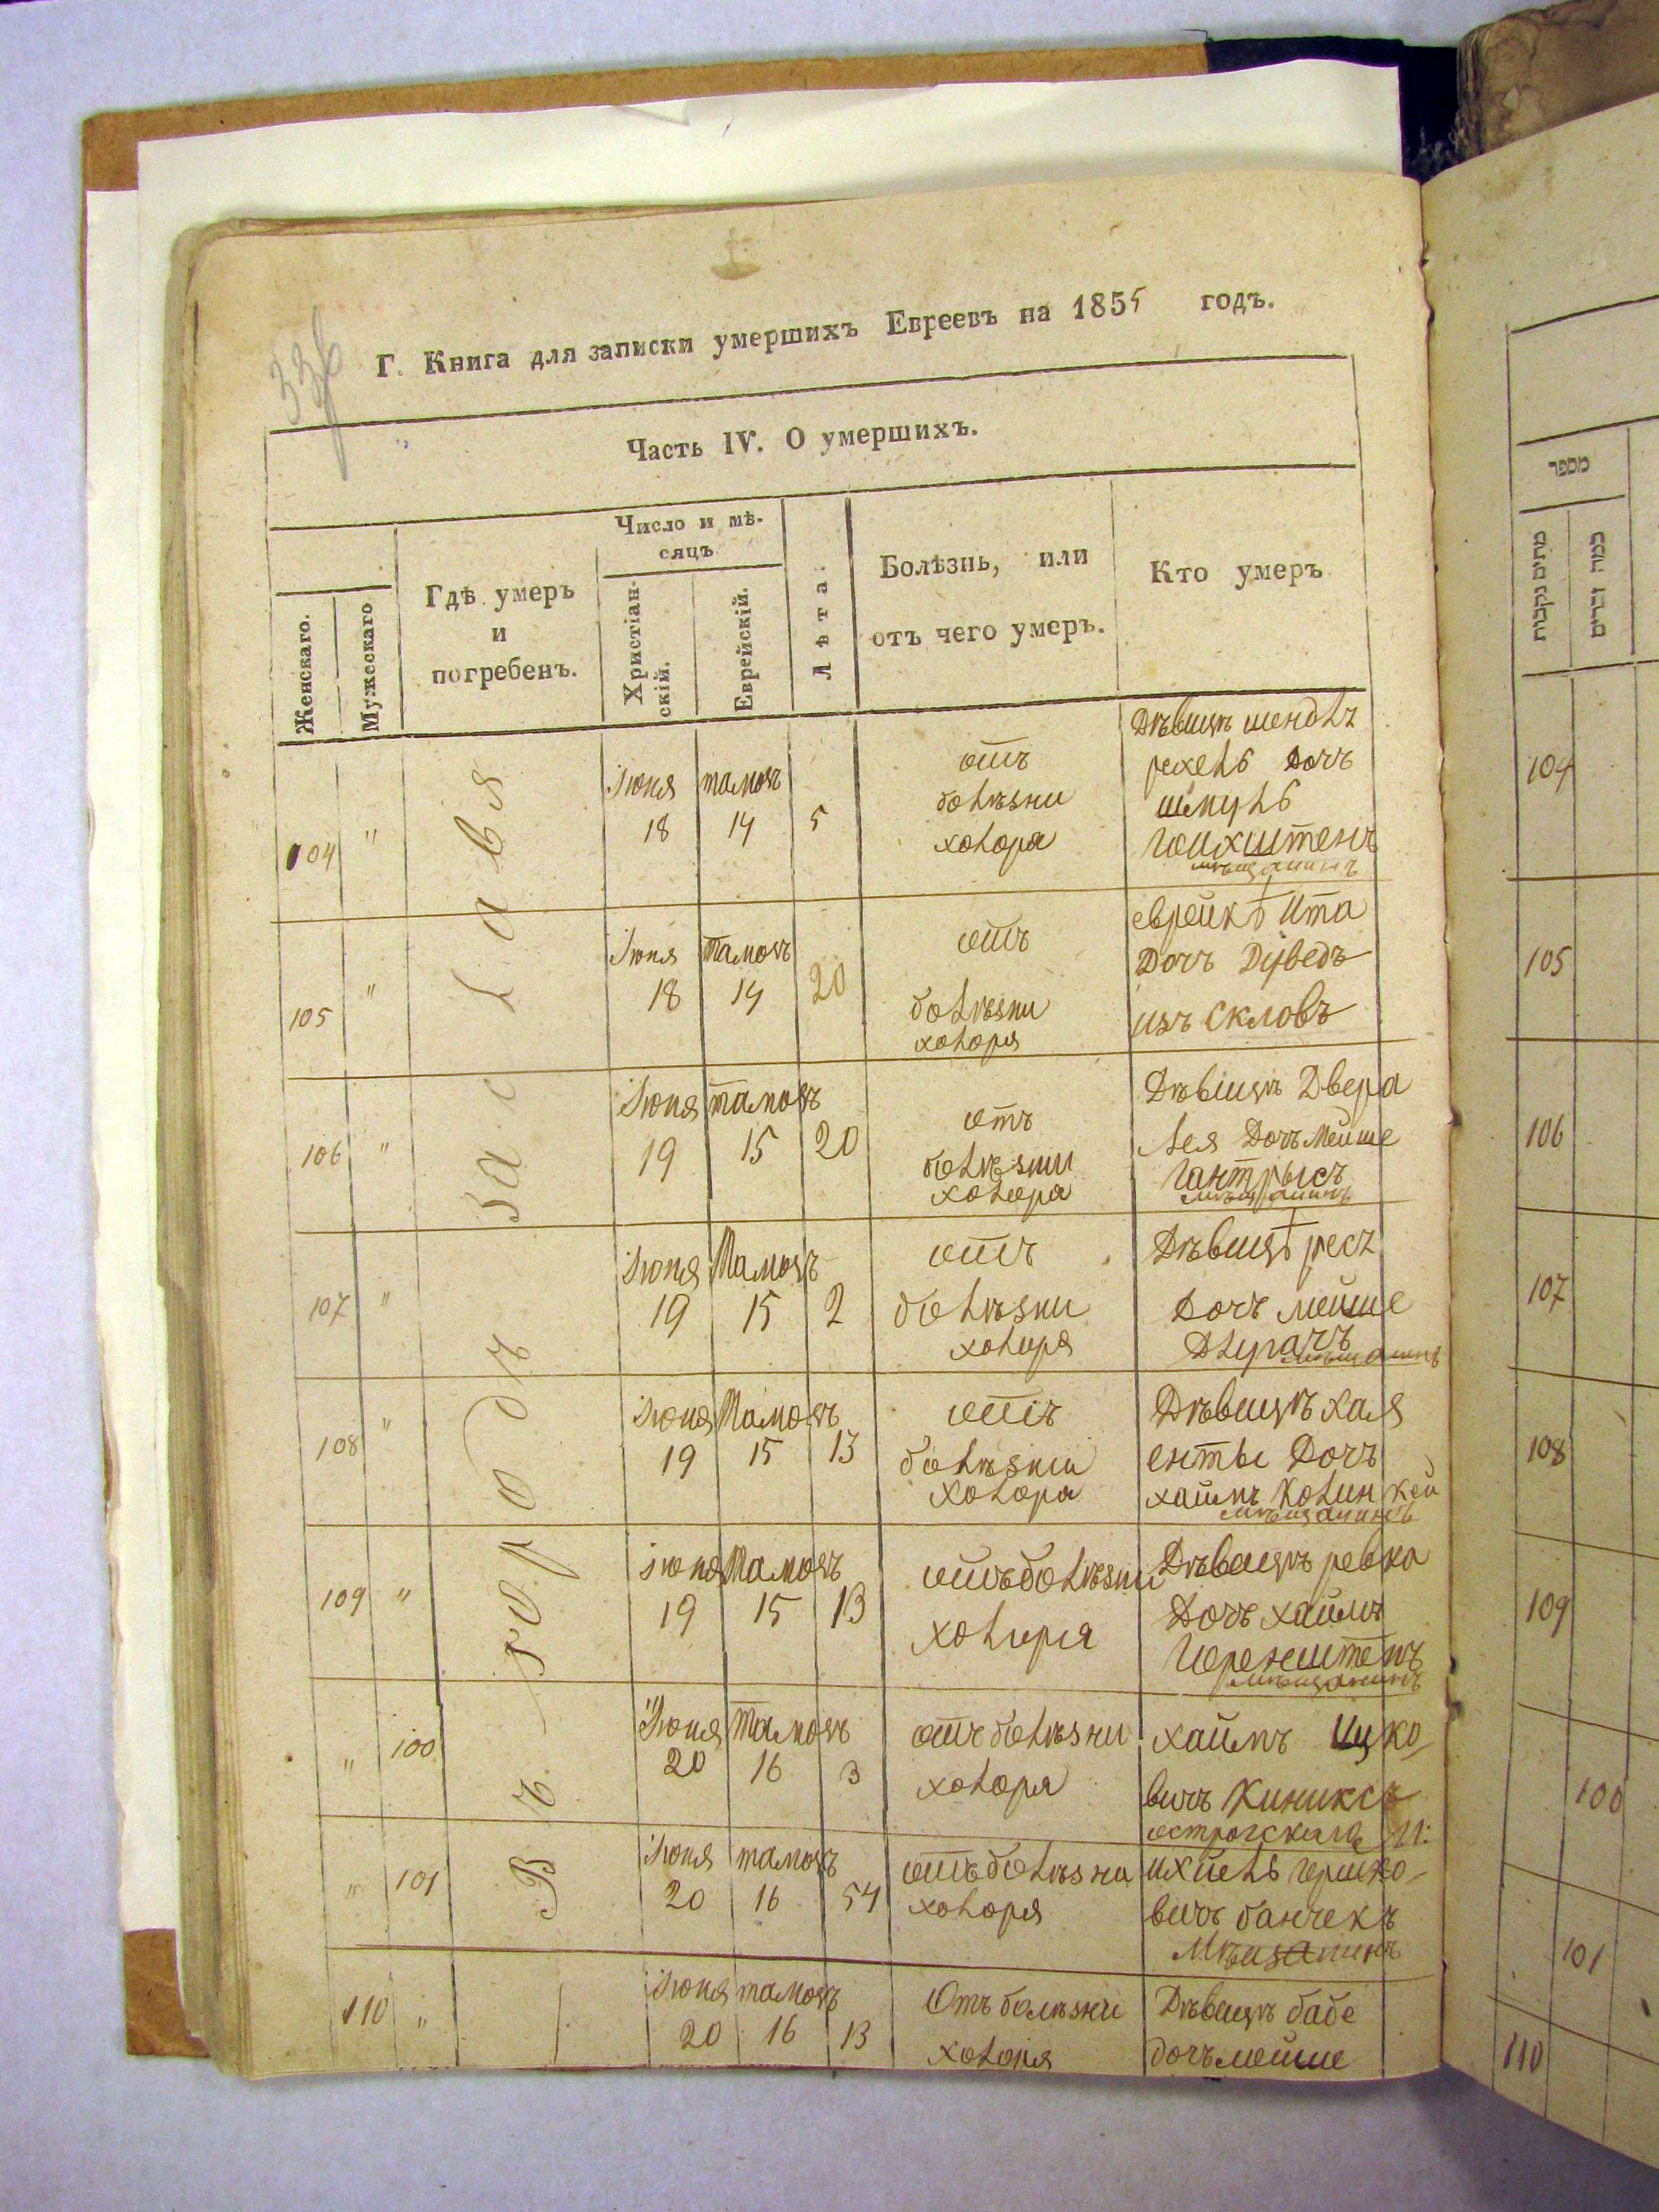 336
Г. Книга для записки умершихъ Евреевъ на 1855 годъ.
Часть IV. О умершихъ.
Женскаго.
Мужескаго
Гдѣ умеръ
и
погребенъ.
Число и мѣ-
сяцъ
Христіан-
скій.
Еврейскій.
Лѣта.
Болѣзнь, или
отъ чего умеръ.
Кто умеръ
Въ городѣ Заславя
104 "
Іюня тамозъ
18 14 5
отъ
болѣзни
холора
Дѣвицѣ шендлъ
рехель дочъ
шмуль
мѣщанинъ
105 "
Іюня тамозъ
18 14 20
отъ
болѣзни
холоря
еврейкѣ Ита
дочъ Дуведъ
изъ Скловъ
106 "
Іюня тамозъ
19 15 20
отъ
болѣзни
холора
Дѣвицѣ Двера
лея дочъ мейше
мѣщанинъ
107 "
Іюня тамозъ
19 15 2
отъ
болѣзни
холоря
Дѣвицѣ
дочъ мейше
мѣщанинъ
108 "
Іюня тамозъ
19 15 13
отъ
болѣзни
холора
Дѣвицѣ хая
енты дочъ
хаимъ
мѣщанинъ
109 "
Іюня тамозъ
19 15 13
отъ болѣзни
холоря
Дѣвицѣ ревка
дочъ хаимъ
мѣщанинъ
" 100
Іюня тамозъ
20 16 3
отъ болѣзни
холоря
хаимъ Ицко
вичъ Киниксъ
острогскаго
" 101
Іюня тамозъ
20 16 54
отъ болѣзни
холоря
ихиель гершко
вичъ банчекъ
мѣщанинъ
110 "
Іюня тамозъ
20 16 13
Отъ болѣзни
холоря
Дѣвицѣ бабе
дочъ мейше
מספר
מתים נקבות
כמה זכרים
104
105
106
107
108
109
100
101
110